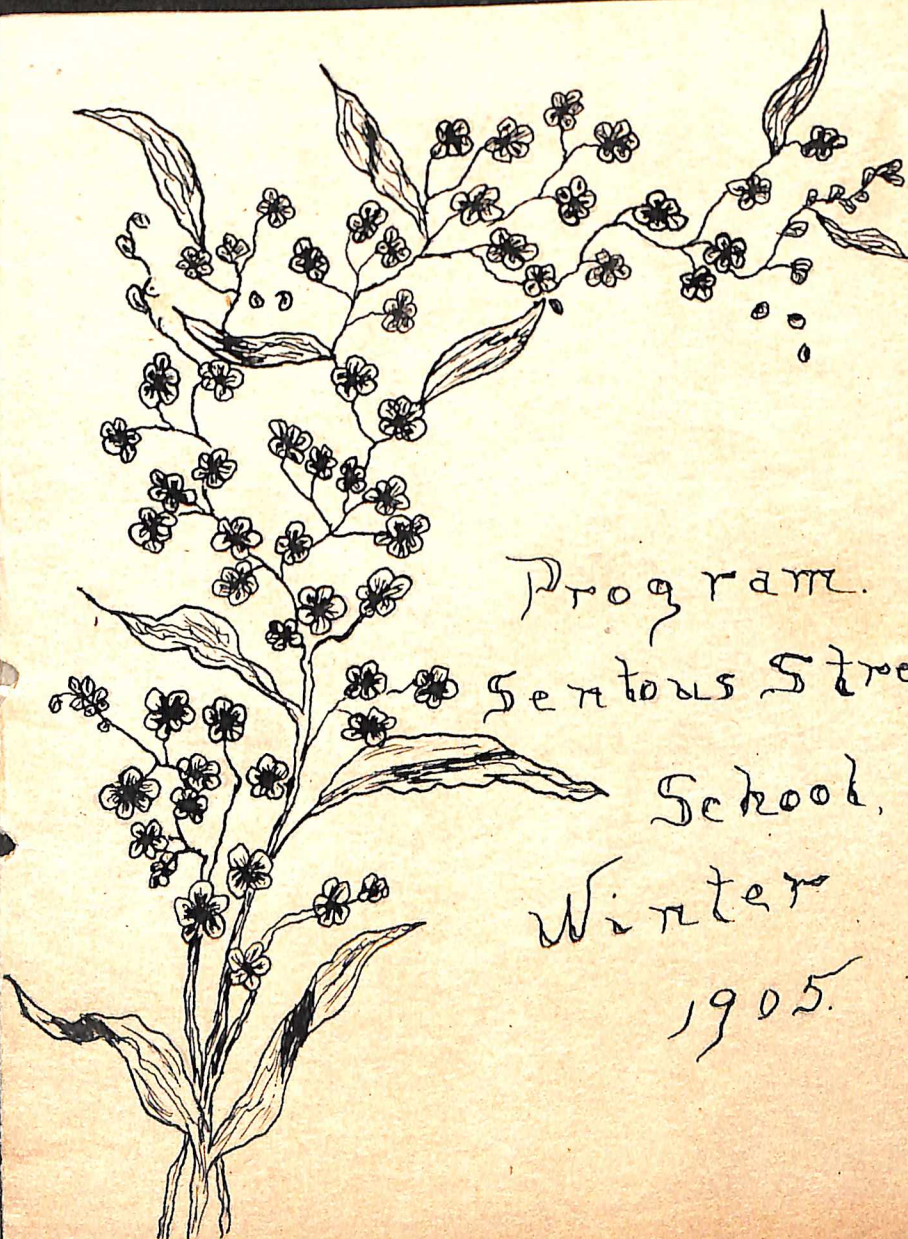 Program.
Sentous Stre
School,
Winter
1905.